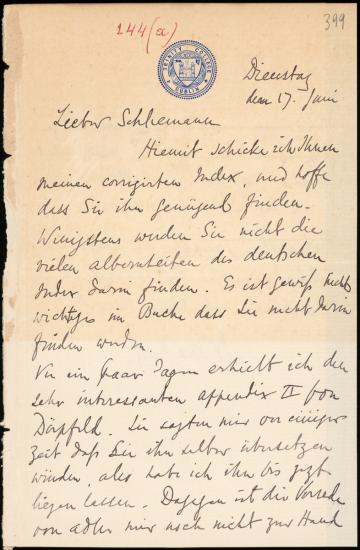 244(a)
399
TRINITY COLLEGE
DUBLIN
Dienstag
dem 17. Juni
Lieber Schliemann
Hiemit schicke ich Ihnen
meinen corrigirten Index, und hoffe
dass Sie ihn genügend finden.
Wenigstens werden Sie nicht die
vielen albernheiten des deutschen
Index darin finden. Es ist gewiss nichts
wichtiges im Buche dass Sie nicht darin
finden werden.
Vor ein paar Tagen erhielt ich den
sehr interessanten appendix II von
Dörpfeld. Sie sagten mir vor einiger
Zeit daß Sie ihn selber übersetzen
würden, also habe ich ihn bis jetzt
liegen lassen. Dagegen ist die Vorrede
von Adler mir noch nicht zur Hand